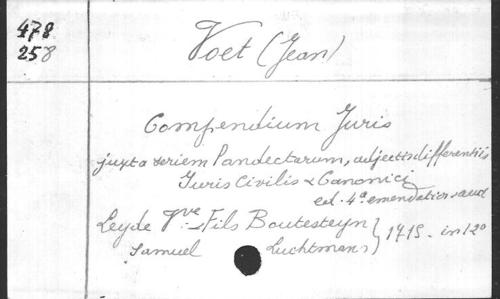 478
258
Voet (Jean)
Compendium Juris
juxta seriem Pandectarum, adjectis differentiis
Juris Civilis & Canonici
ed. 4ª emendatior & aud
Leyde Vve & Fils Boutesteyn
Samuel Luchtmans } 1715 - in 12º